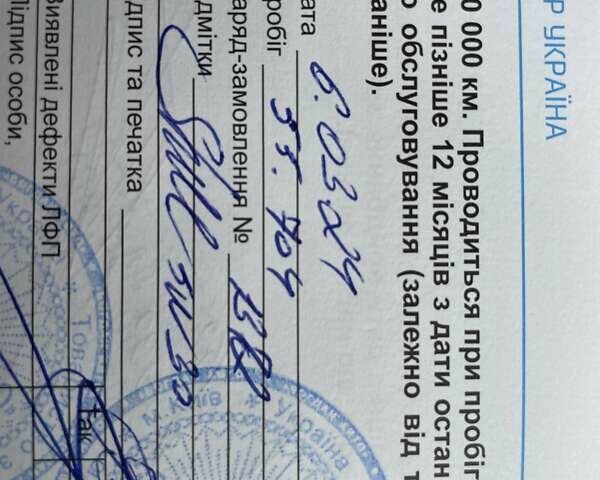 Р УКРАЇНА
0 000 км. Проводиться при пробіг
е пізніше 12 місяців з дати остан
о обслуговування (залежно від т
аніше).
ата 6.03.24
робіг 55.704
аряд-замовлення №
дмітки Shell 5W30
дпис та печатка
Виявлені дефекти ЛФП
Так
Підпис особи,
м. Київ * Україна
Тов